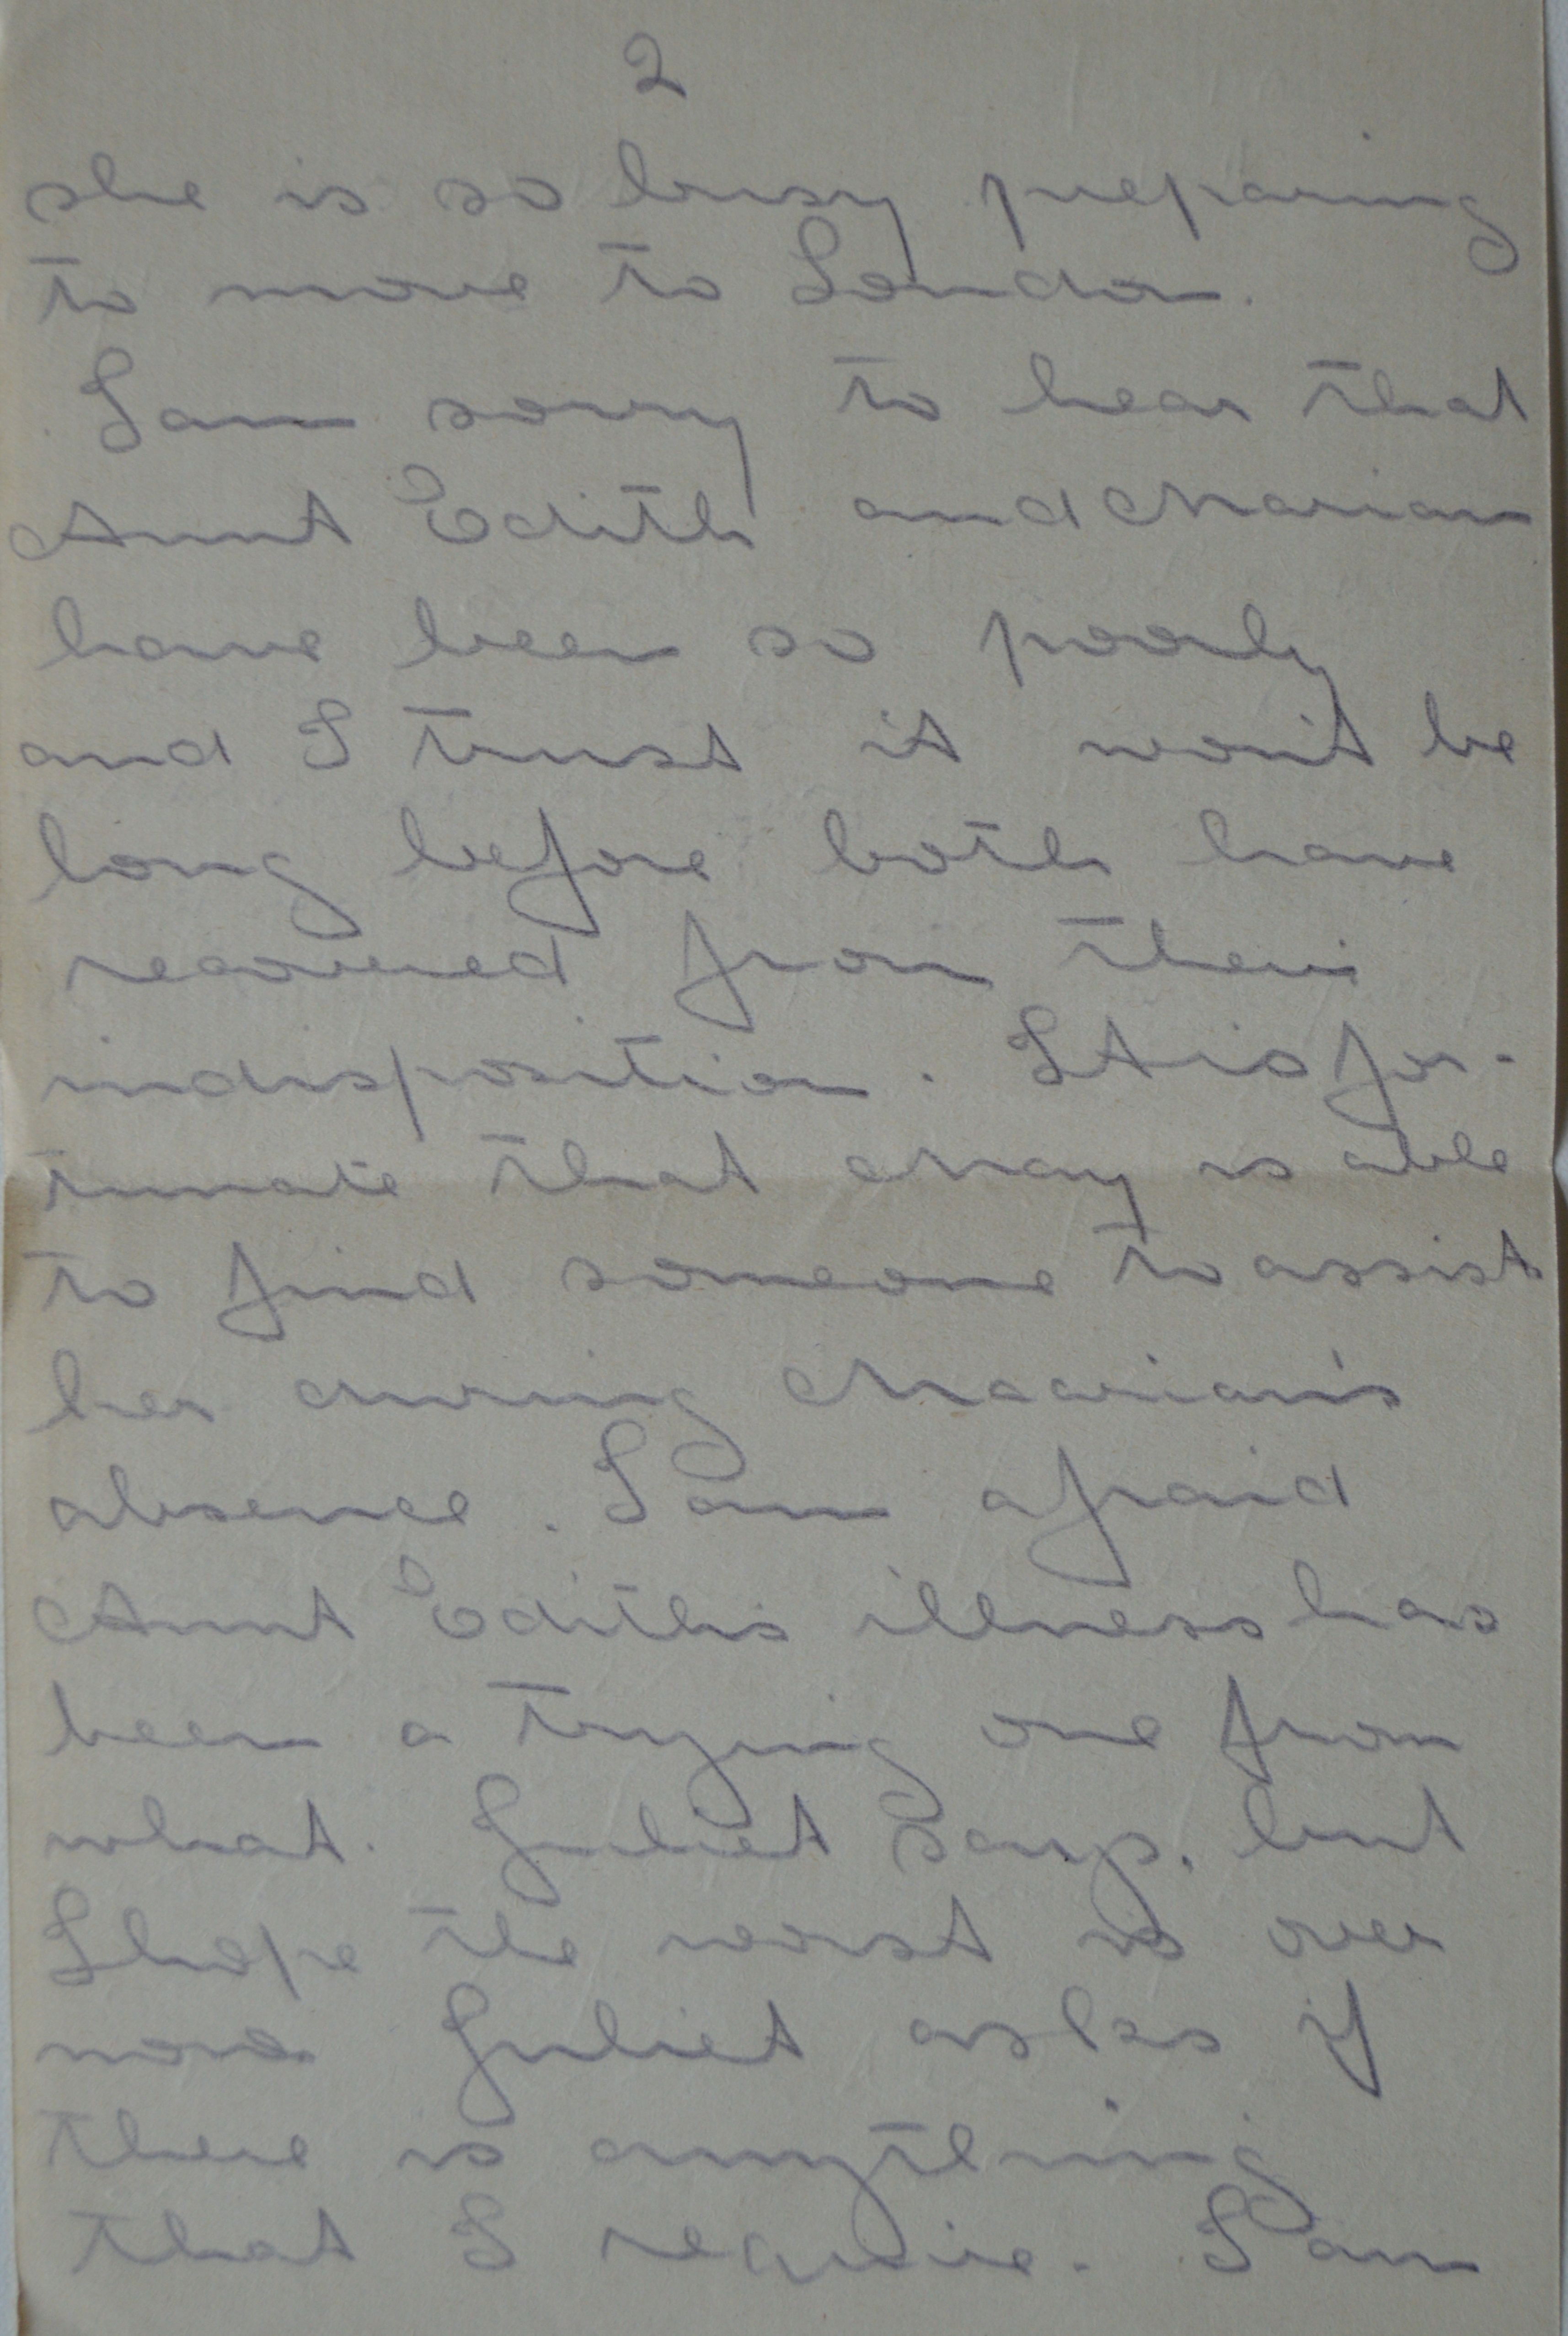 2
she is so busy preparing
to move to London.
I am sorry to hear that
Aunt Edith and Marian
have been so poorly
and I trust it won't be
long before both have
recovered from their
indisposition. It is for-
tunate that May is able
to find someone to assist
her during Maarian's
absence. I am afraid
Aunt Edith's illness has
been a trying one from
what. Juliet says, but
I hope the worst is over
now Juliet asks if
there is anything
that I require. I am